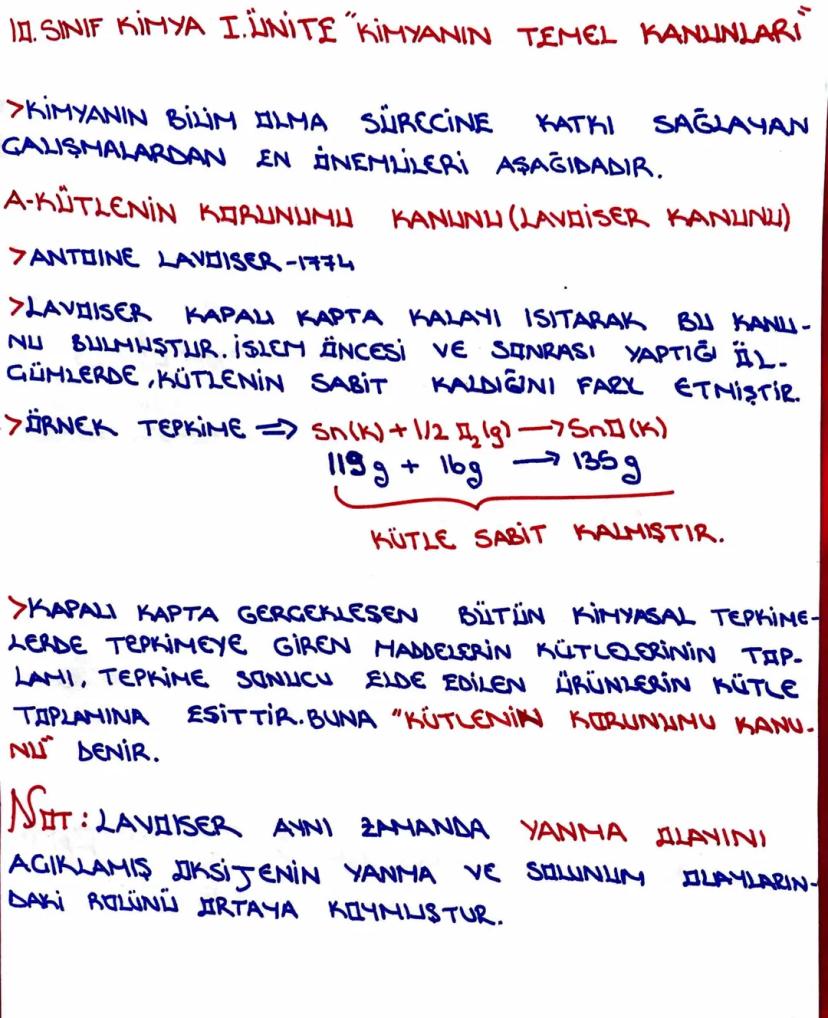 10. SINIF KİMYA I. ÜNİTE "KİMYANIN TEMEL KANUNLARI"
>KİMYANIN BİLİM OLMA SÜRECİNE KATKI SAĞLAYAN
ÇALIŞMALARDAN EN ÖNEMLİLERİ AŞAĞIDADIR.
A-KÜTLENİN KORUNUMU KANUNU (LAVOİSER KANUNU)
>ANTOINE LAVOISER-1774
>LAVOISER KAPALI KAPTA KALAYI ISITARAK BU KANU-
NU BULMUŞTUR. İŞLEM ÖNCESİ VE SONRASI YAPTIĞI ÖL-
ÇÜMLERDE, KÜTLENİN SABİT KALDIĞINI FARK ETMİŞTİR.
>ÖRNEK TEPKİME => Sn(k) + 1/2 O₂(g) → SnO(k)
119g + 16g → 135g
KÜTLE SABİT KALMIŞTIR.
>KAPALI KAPTA GERÇEKLEŞEN BÜTÜN KİMYASAL TEPKİME-
LERDE TEPKİMEYE GİREN MADDELERİN KÜTLELERİNİN TOP-
LAMI, TEPKİME SONUCU ELDE EDİLEN ÜRÜNLERİN KÜTLE
TOPLAMINA EŞİTTİR. BUNA "KÜTLENİN KORUNUMU KANU-
NU" DENİR.
NOT: LAVOISER AYNI ZAMANDA YANMA OLAYINI
AÇIKLAMIŞ OKSİJENİN YANMA VE SOLUNUM OLAYLARIN-
DAKİ ROLÜNÜ ORTAYA KOYMUŞTUR.